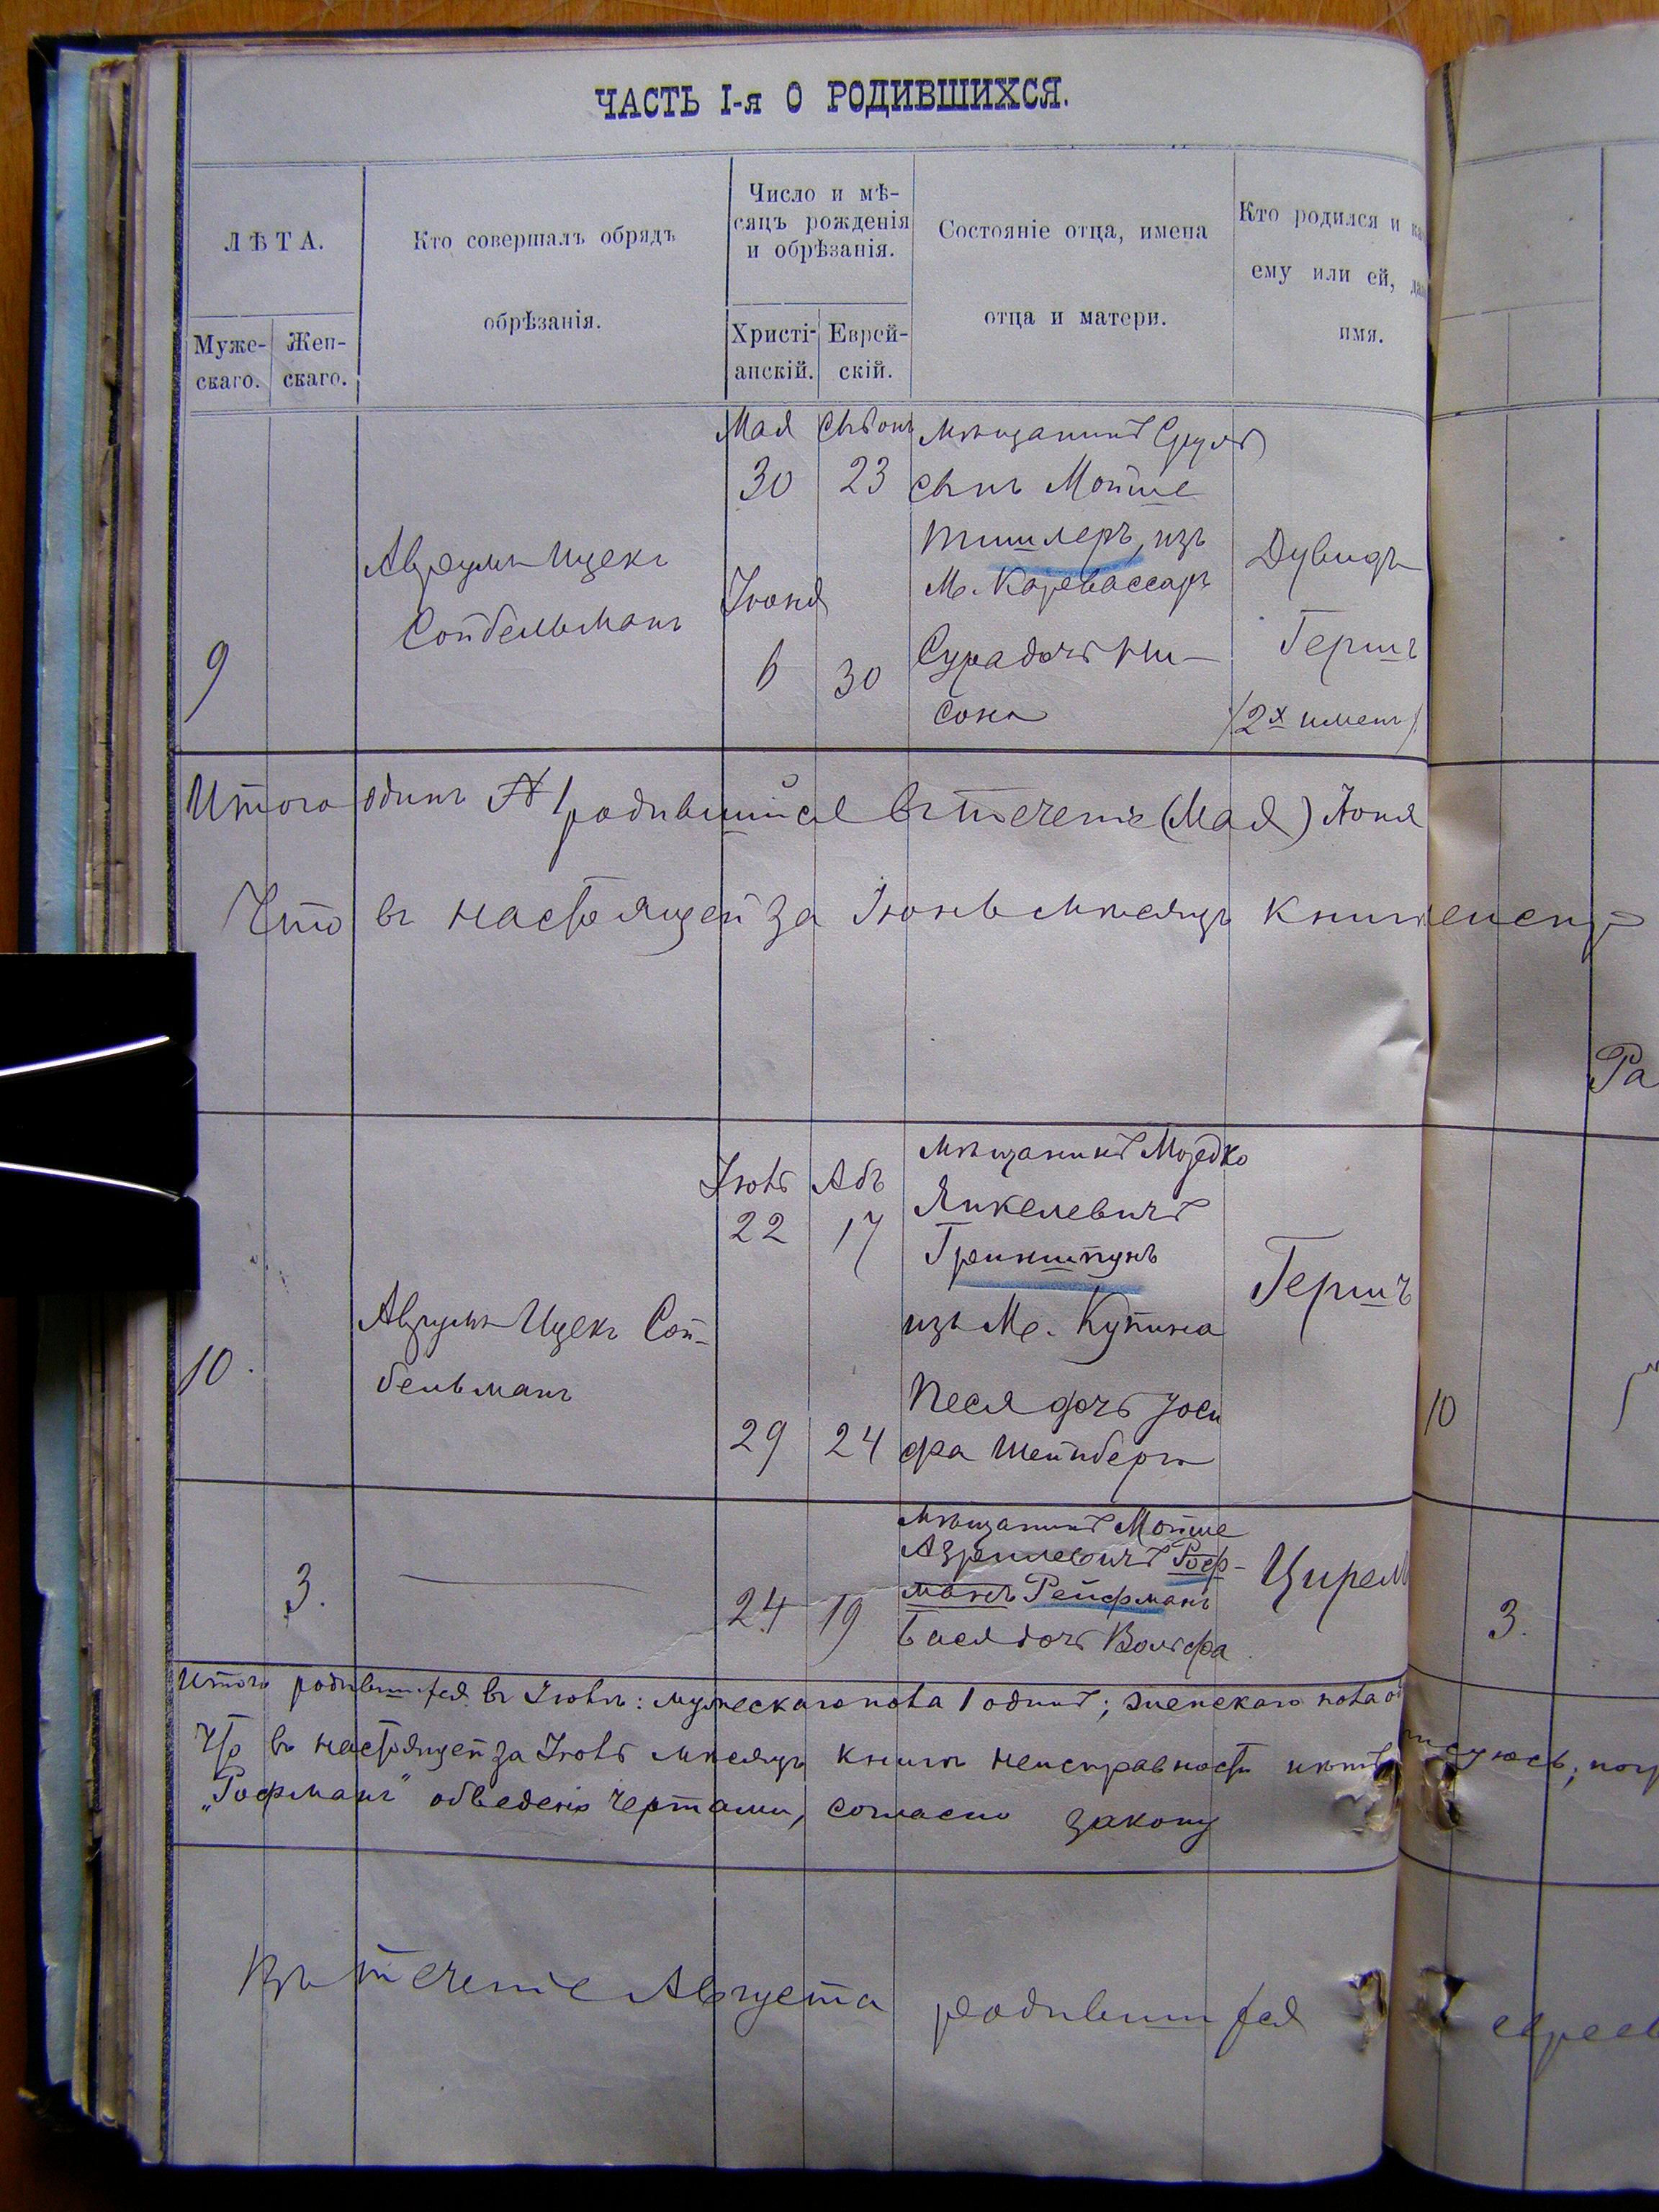 ЧАСТЬ I-я О РОДИВШИХСЯ.
ЛѢТА.
Муже-
скаго.
Жен-
скаго.
Кто совершалъ обрядъ
обрѣзанія.
Число и мѣ-
сяцъ рожденія
и обрѣзанія.
Христі-
анскій.
Еврей-
скій.
Состояніе отца, имена
отца и матери.
Кто родился и
ему или ей,
имя.
9
Аврумъ Ицекъ
Сойбельманъ
Мая
30
Іюня
6
Сывонъ
23
30
мѣщанинъ Сруль
сынъ Мойше
Тишлеръ, изъ
м. Каревассаръ
Сура дочь Ни-
сона
Дувидъ
Гершъ
(2х именъ)
Итого одинъ № 1 родившійся въ теченіе (Мая) Іюня
Что въ настоящей за Іюнь мѣсяцъ книгѣ
Ра
10
Аврумъ Ицекъ Сой-
бельманъ
Іюль
22
29
Абъ
17
24
мѣщанинъ Мордко
Янкелевичъ
Гринштунъ
изъ м. Купина
Песя дочь Іоси
фа Шейнбергъ
Гершъ
10
3.
24
19
мѣщанинъ Мойше
Азрилевичъ Роф-
манъ Рейфманъ
Бася дочь Вольфа
Цирель
3.
Итого родившихся въ Іюлѣ: мужескаго пола 1 одинъ; женскаго пола
Что въ настоящей за Іюль мѣсяцъ книгѣ неисправности нѣтъ
„Рофманъ" обведено чертами, согласно закону
Въ теченіе Августа родившихся